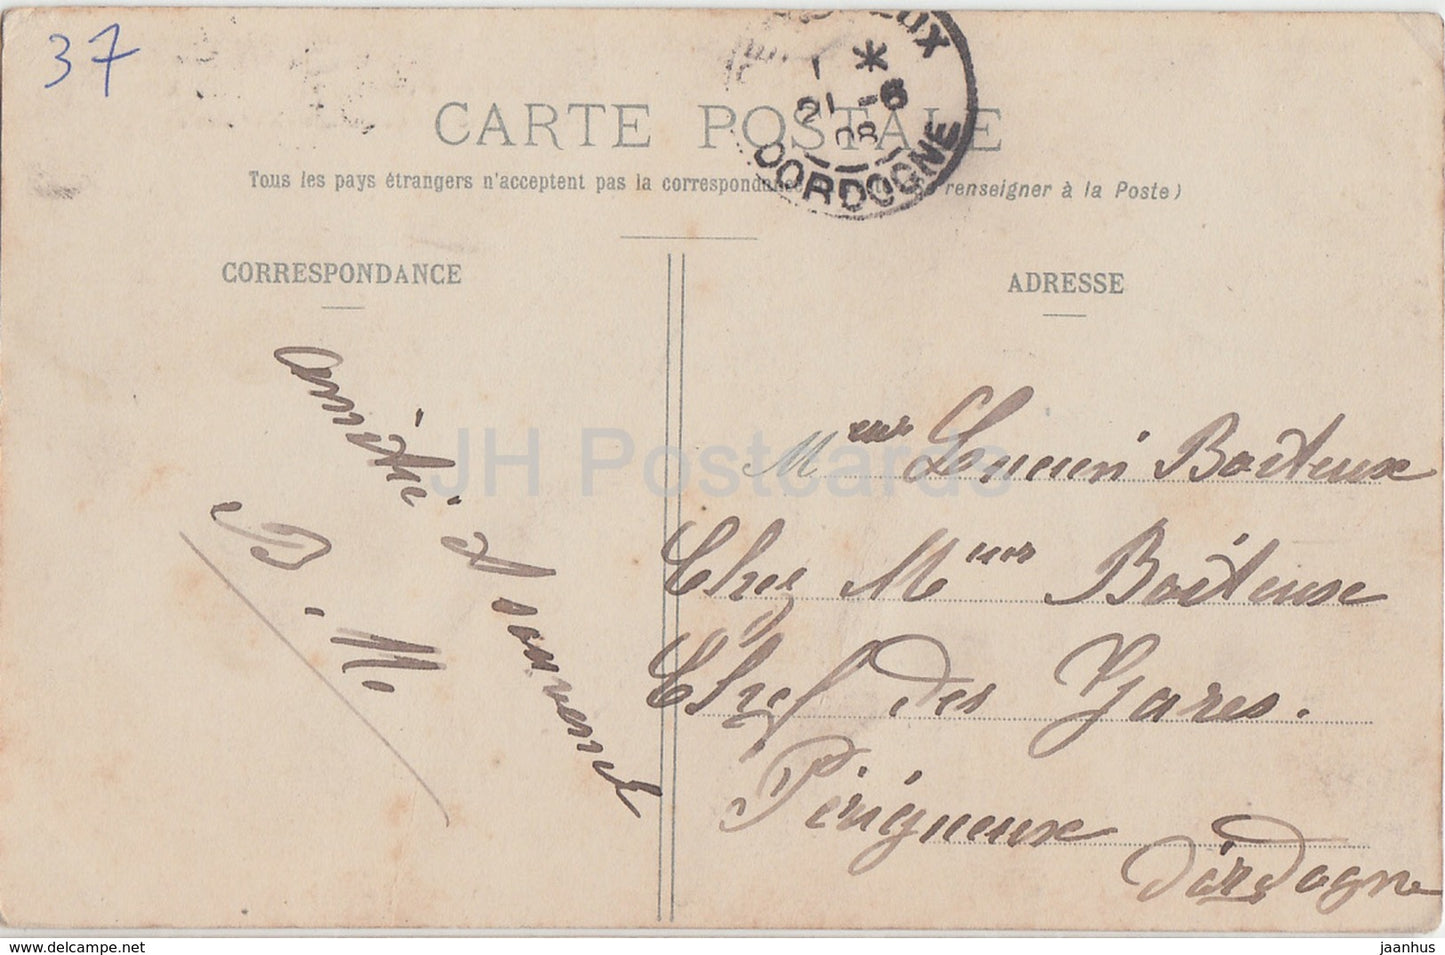 37
CARTE POSTALE
Tous les pays étrangers n'acceptent pas la correspondance renseigner à la Poste)
* 21 -6 08
DORDOGNE
CORRESPONDANCE
ADRESSE
amitié et souvenir
D. M.
Meur Lucien Boiteux
Chez Meur Boiteux
Chef des Gares.
Périgueux
Dordogne
JH Postcards
jaanhus